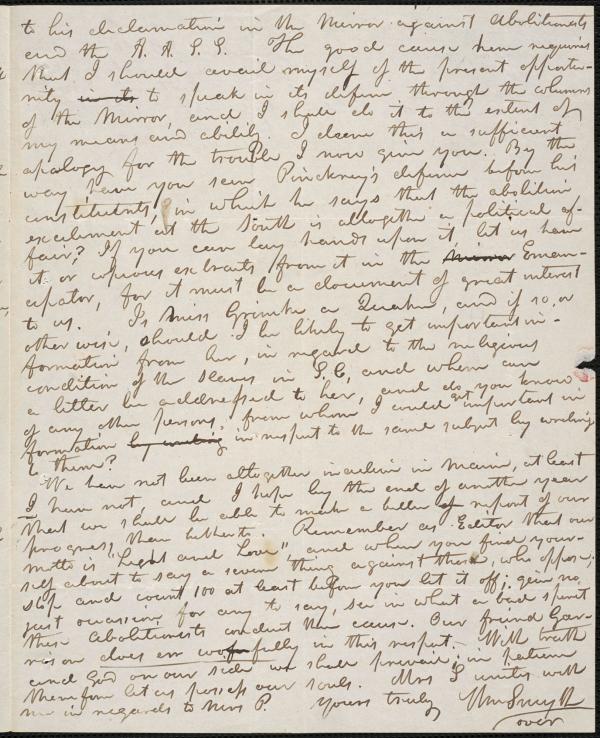 to his declamation in the Mirror against Abolitionists
and the A. A. S. S. The good cause here requires
that I should avail myself of the present opportu-
nity in its to speak in its defense through the columns
of the Mirror, and I shall do it to the extent of
my means and ability. I deem this a sufficient
apology for the trouble I now give you. By the
way have you seen Pinckney's defense before his
constitutents, in which he says that the abolition
excitement at the South is altogether a political af-
fair? If you can lay hands upon it, let us have
it or copious extracts from it in the Mirror Eman-
cipator, for it must be a document of great interest
to us. Is Miss Grimke a Quaker, and if so, or
otherwise, should I be likely to get important in-
formation from her, in regard to the religious
condition of the slaves in S. C, and where can
a letter be addressed to her, and do you know
of any other persons, from whom I could get important in
formation by writing in respect to the same subject by writing
to them?
We have not been altogether inactive in Maine, at least
I have not, and I hope by the end of another year
that we shall be able to make a better report of our
progress, than hitherto. Remember as Editor that our
motto is "Light and Love", and when you find your-
self about to say a severe thing against those, who oppose,
stop and count 100 at least before you let it off; give no
just occasion for any to say, see in what a bad spirit
these Abolitionists conduct their cause. Our friend Gar-
rison does err woefully in this respect. With truth
and God on our side we shall prevail; in patience
therefore let us possess our souls. Mrs S unites with
me in regards to Mrs P Yours truly Wm Smyth
over